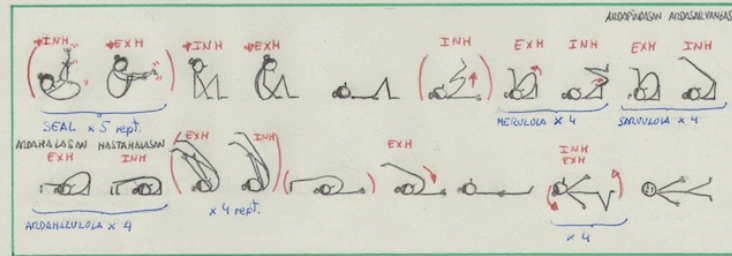 ARDAPINDASAN ARDASARVANGAS
INH EXH INH EXH INH EXH INH EXH INH
SEAL x 5 rept. MERULOLA x 4 SARVULOLA x 4
ARDAHALASAN HASTAHALASAN
EXH INH EXH INH EXH INH
EXH
x 4 rept.
ARDAHALULOLA x 4 x 4